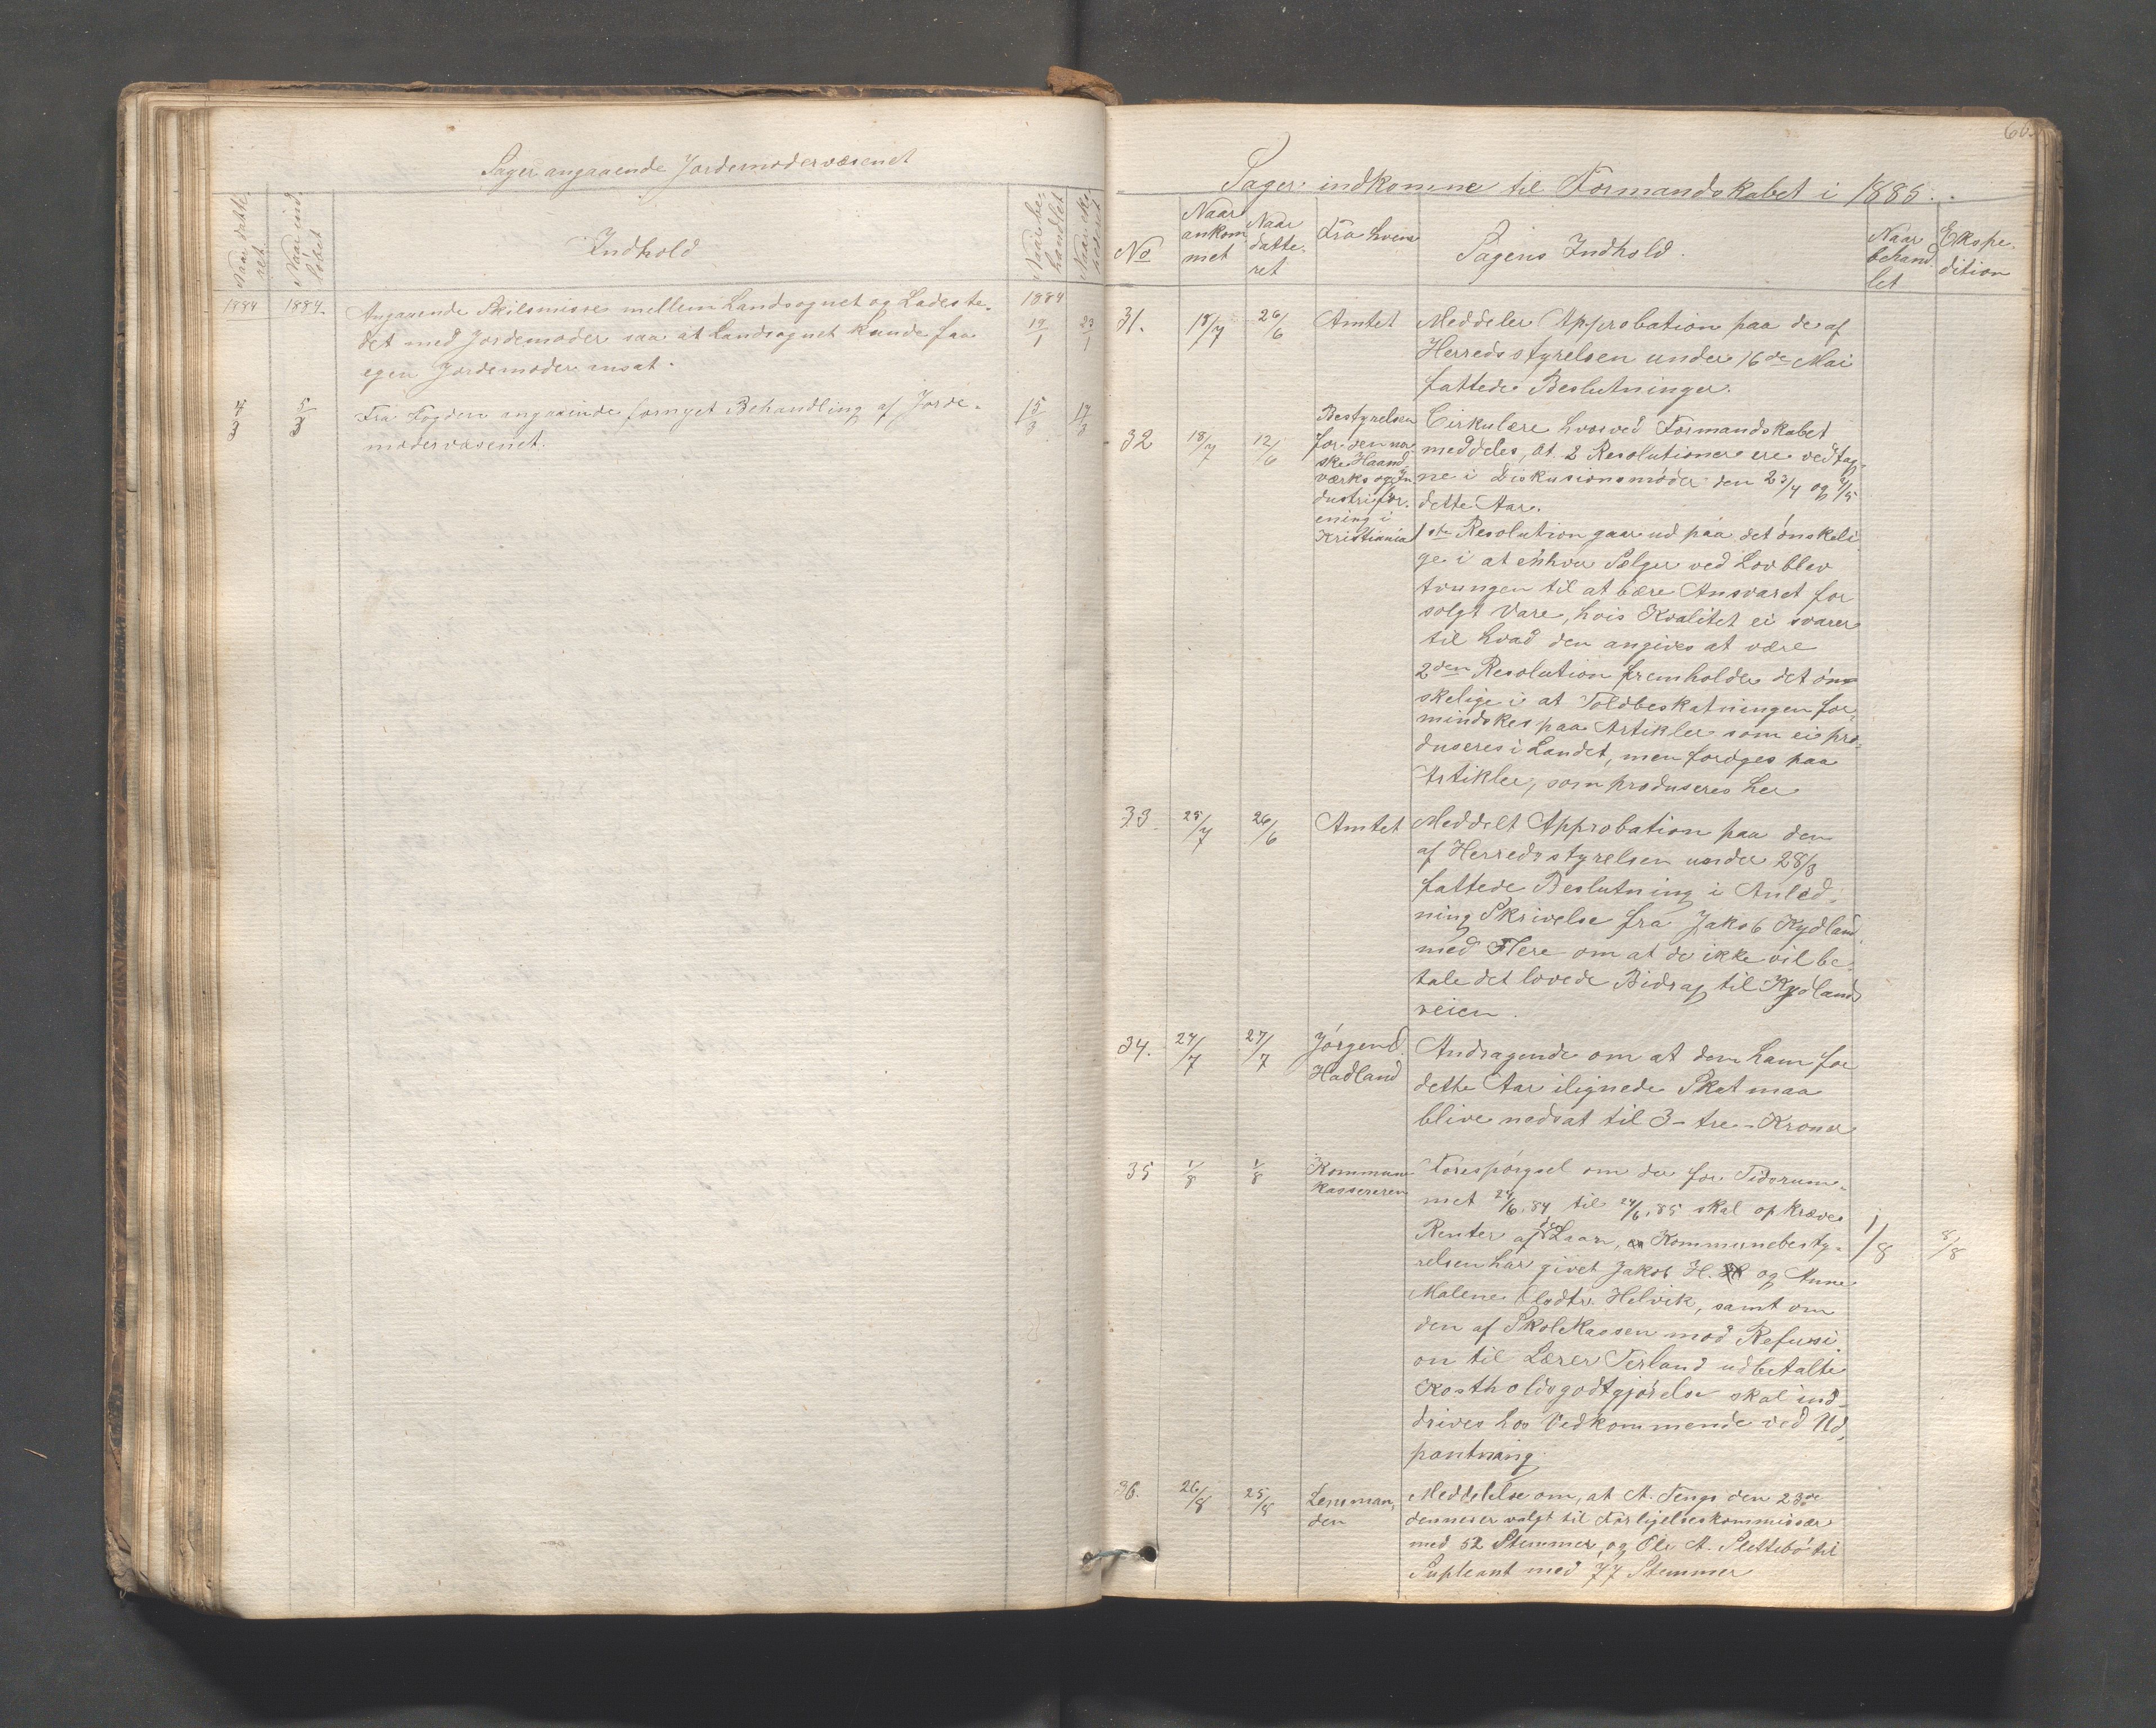 Sager angaaende Jordemodervæsenet
Naar datte-
ret.
Naar ind-
løbet
Indhold
Naar be-
handlet
1884
1884.
Angaaende Skilsmisse mellem Landsognet og Ladeste-
det med Jordemoder saa at Landsognet kunde faa
egen Jordemoder ansat.
1884
19/1
23/1
4/3
5/3
Fra Fogden angaaende fornyet Behandling af Jorde-
modervæsenet.
15/3
17/3
60.
Sager indkomne til Formandskabet i 1885.
No
Naar
ankom
met
Naar
datte-
ret
Fra hvem
Sagens Indhold.
Naar
behand
let
Ekspe-
dition
31.
18/7
26/6
Amtet
Meddeler Approbation paa de af
Herredsstyrelsen under 16de Mai
fattede Beslutninger.
32
18/7
12/6
Bestyrelsen
for den nor
ske Haand
værks og In
dustrifor-
ening i
Kristiania
Cirkulære hvorved Formandskabet
meddeles, at 2 Resolutioner ere vedtag-
ne i Diskusionsmøder den 23/4 og 4/5
dette Aar.
1ste Resolution gaar ud paa det ønskeli
ge i at enhver Sælger ved Lov blev
tvungen til at bære Ansvaret for
solgt Vare, hvis Kvalitet ei svarer
til hvad den angives at være
2den Resolution fremholder det øn
skelige i at Toldbeskatningen for-
mindskes paa Artikler som ei pro-
duseres i Landet, men forøges paa
Artikler, som produseres her
33.
25/7
26/6
Amtet
Meddelt Approbation paa den
af Herredsstyrelsen under 28/3
fattede Beslutning i Anled-
ning Skrivelse fra Jakob Kydland
med Flere om at de ikke vil be-
tale det lovede Bidrag til Kydlands
veien.
34.
27/7
27/7
Jørgen d.
Hadland
Andragende om at den ham for
dette Aar ilignede Skat maa
blive nedsat til 3 - tre - Kroner
35
1/8
1/8
Kommune
kassereren
Forespørgsel om der for Tidsrum-
met 24/6, 84 til 24/6, 85 skal opkræves
Renter af de Laan, Kommunebesty-
relsen har givet Jakob H. og Anne
Malene Helvik, samt om
den af Skolekassen mod Refusi-
on til Lærer Terland udbetalte
Kostholdsgodtgjørelse skal ind-
drives hos Vedkommende ved Ud-
pantning.
1/8
8/8
36.
26/8
25/8
Lensman-
den
Meddelelse om, at A. Tengs den 23de
dennes er valgt til Forligelseskommissær
med 52 Stemmer, og Ole A. Slettebø til
Supleant med 77 Stemmer